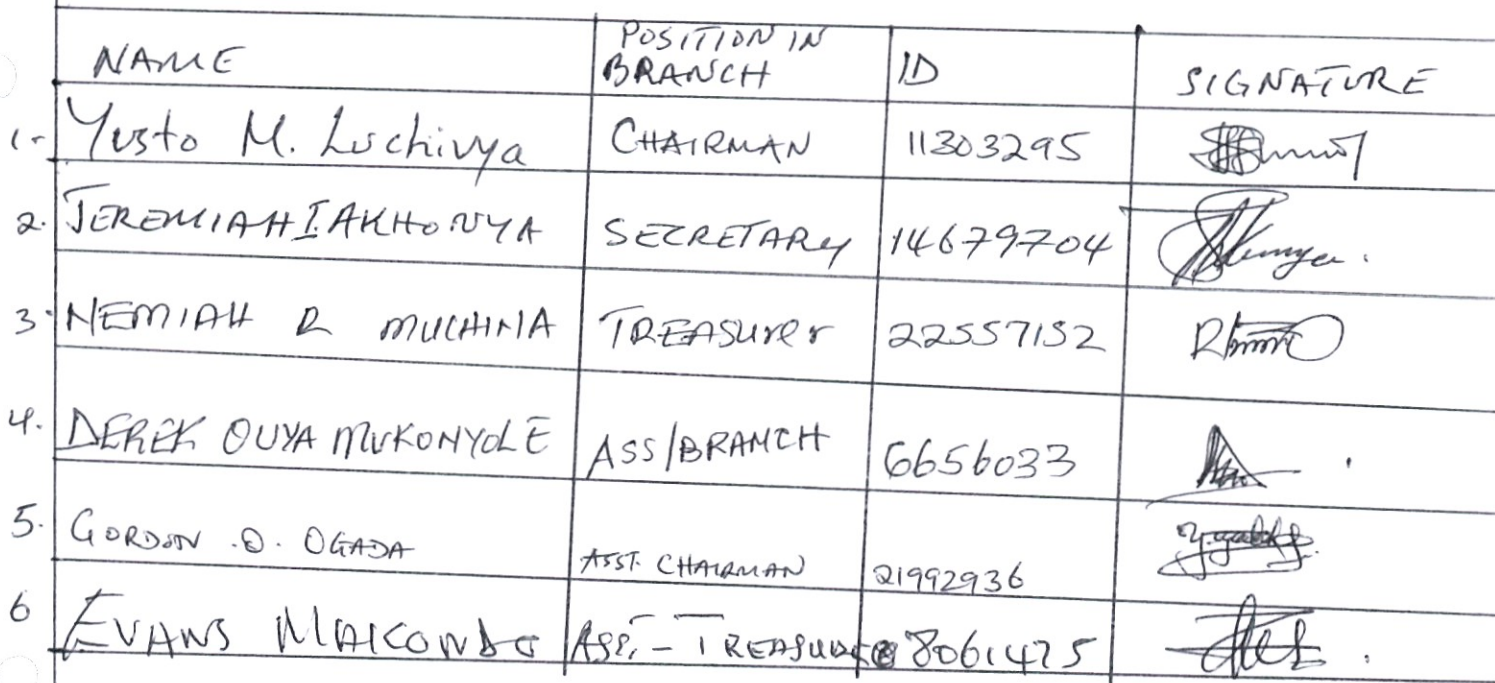 NAME POSITION IN BRANCH ID SIGNATURE
1- Yusto M. Luchivya CHAIRMAN 11303295
2. JEREMIAH I AKHONYA SECRETARY 14679704
3. NEMIAH R MUCHINA TREASURER 22557152
4. DEREK OUYA MUKONYOLE ASS/BRANCH 6656033
5. GORDON .O. OGADA ASST. CHAIRMAN 21992936
6 EVANS MAKONDO ASST.- TREASURER 8061475